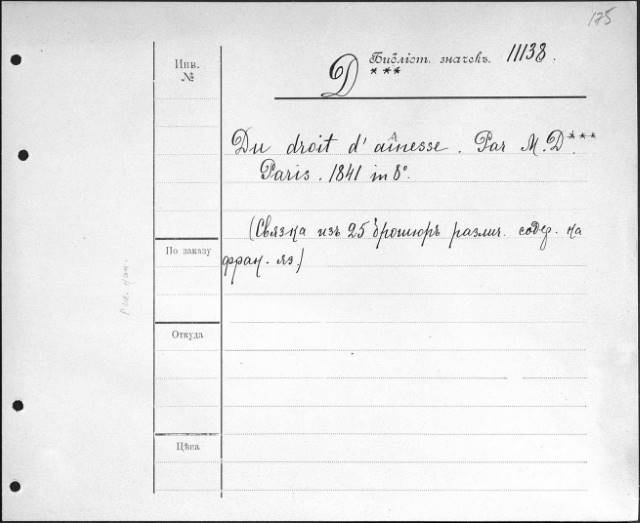 175
Инв.
№
Библіот. значекъ. 11138.
D***
Du droit d'aînesse. Par M. D***.
Paris. 1841 in 8°.
(Связка изъ 25 брошюръ различ. содер. на
По заказу
фран. яз.)
Откуда
Цѣна